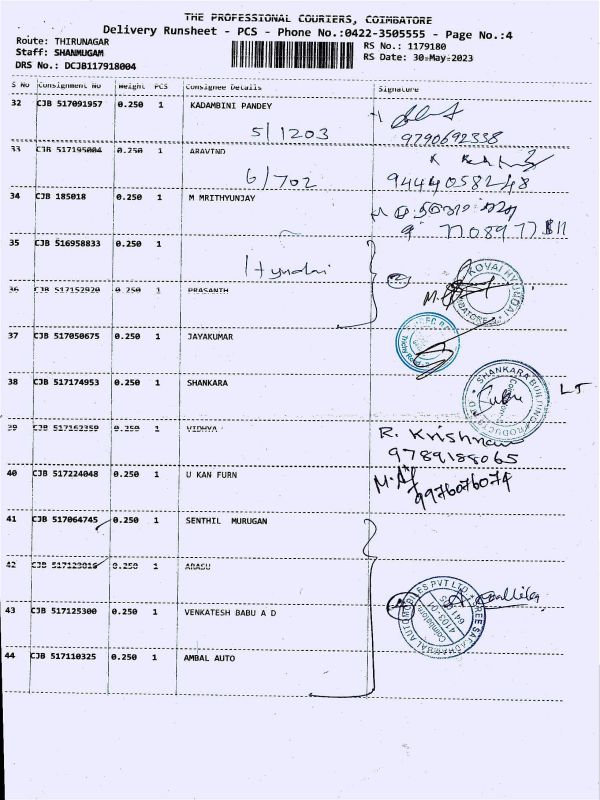 THE PROFESSIONAL COURIERS, COIMBATORE
Delivery Runsheet - PCS - Phone No.:0422-3505555 - Page No.:4
Route: THIRUNAGAR
Staff: SHANMUGAM
DRS No.: DCJB117918004
RS No.: 1179180
RS Date: 30-May-2023
S No Consignment No Weight PCS Consignee Details Signature
32 CJB 517091957 0.250 1 KADAMBINI PANDEY
5/1203 9790692338
33 CJB 517195004 0.250 1 ARAVIND
6/702 9444058248
34 CJB 185018 0.250 1 M MRITHYUNJAY
35 CJB 516958833 0.250 1
Hyundai
KOVAI HYUNDAI
36 CJB 517152920 0.250 1 PRASANTH
37 CJB 517050675 0.250 1 JAYAKUMAR
38 CJB 517174953 0.250 1 SHANKARA
SHANKARA BUILDING PRODUCTS
39 CJB 517162359 0.250 1 VIDHYA
R. Krishnan
9789188065
40 CJB 517224048 0.250 1 U KAN FURN
9976076074
41 CJB 517064745 0.250 1 SENTHIL MURUGAN
42 CJB 517123016 0.250 1 ARASU
43 CJB 517125300 0.250 1 VENKATESH BABU A D
44 CJB 517110325 0.250 1 AMBAL AUTO